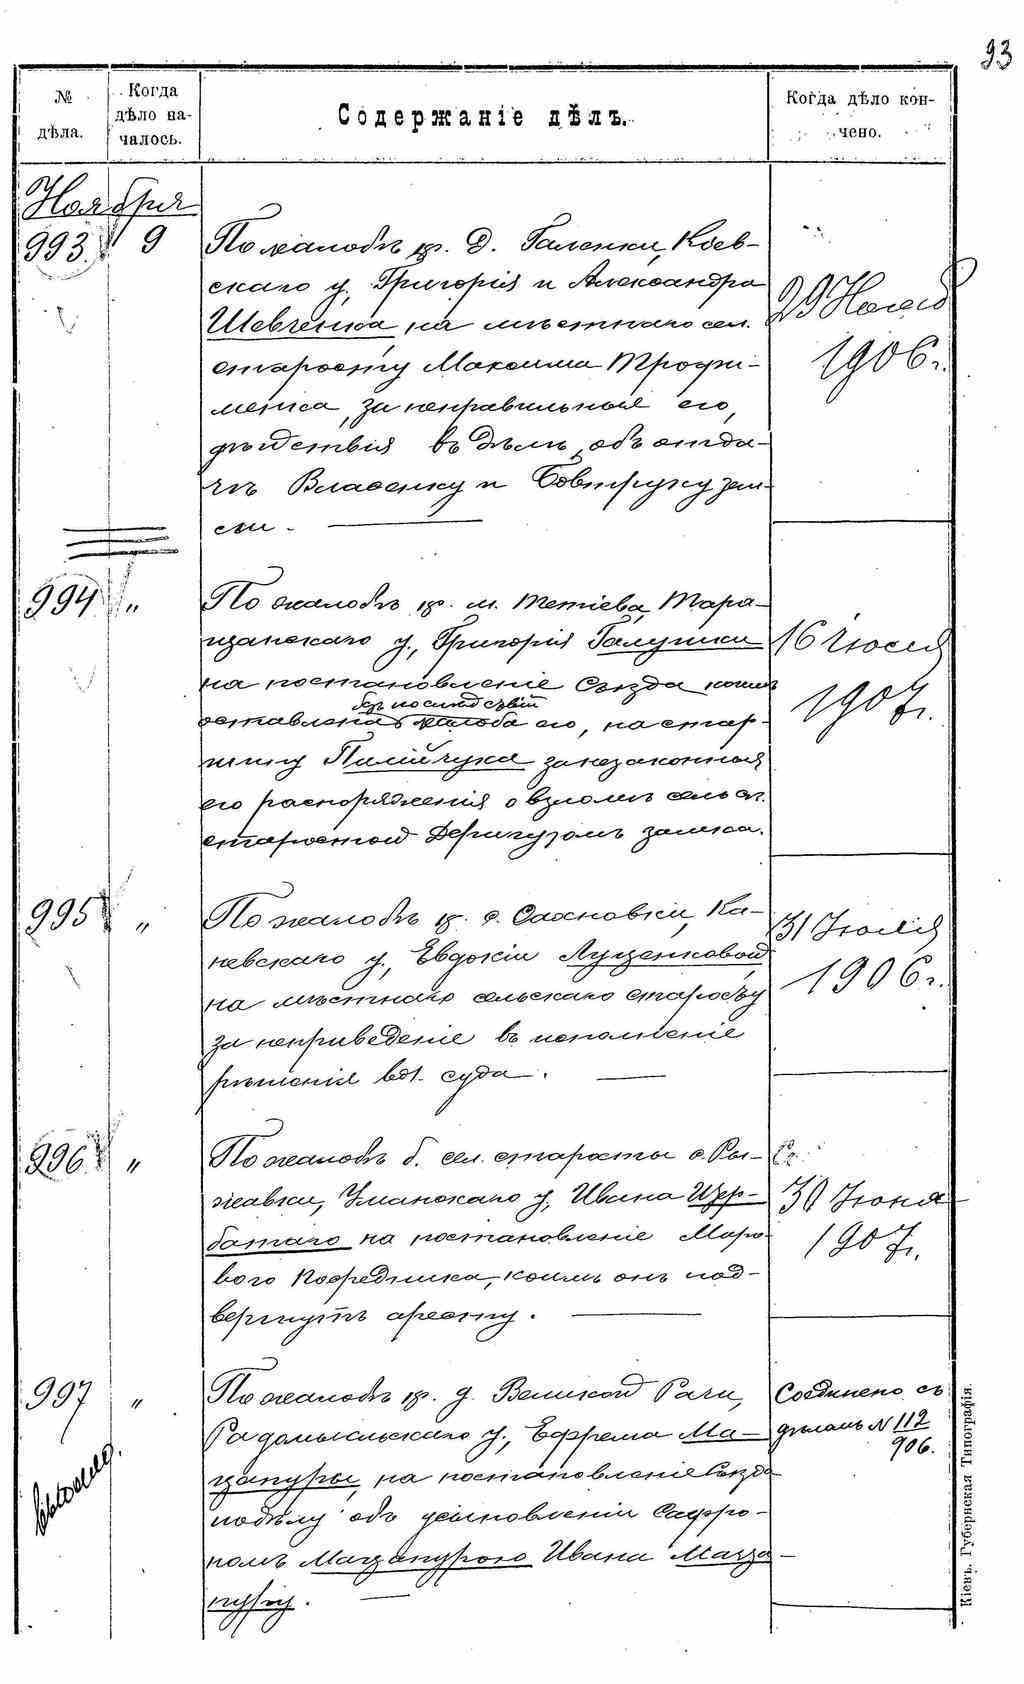 93
№ дѣла.
Когда дѣло на-
чалось.
Содержаніе дѣлъ.
Когда дѣло кон-
чено.
Ноября
993. 9
По жалобѣ кр. д. Галенки, Кіев-
скаго у., Григорія и Александра
Шевченка, на мѣстнаго сел.
старосту Максима Трофи-
менка, за неправильныя его,
дѣйствія въ дѣлѣ, объ отда-
чѣ Власенку и Бовтруку зем-
ли.
29 Нояб
1906 г.
994 "
По жалобѣ кр. м. Тетіева, Тара-
щанскаго у., Григорія Галушки
на постановленіе Съѣзда коимъ
безъ послѣдствій
оставлена жалоба его, на стар-
шину Палійчука за незаконныя
его распоряженія о взломѣ сельск.
старостой Деригузомъ замка.
16 Іюля
1907 г.
995 "
По жалобѣ кр. с. Сахновки, Ка-
невскаго у., Евдокіи Луценковой
на мѣстнаго сельскаго старосту
за неприведеніе въ исполненіе
рѣшенія вол. суда.
31 Іюля
1906 г.
996. "
По жалобѣ б. сел. старосты с. Ры-
жавки, Уманскаго у., Ивана Щер-
батаго на постановленіе Миро-
вого Посредника, коимъ онъ под-
вергнутъ аресту.
30 Іюня
1907 г.
997 "
По жалобѣ кр. д. Великой Рачи,
Радомысльскаго у., Ефрема Ма-
цапуры, на постановленіе Съѣзда
по дѣлу объ усыновленіи Сафро-
номъ Мацапурою Ивана Маца-
пуру.
Соединено съ
дѣломъ № 112
906.
Кіевъ. Губернская Типографія.